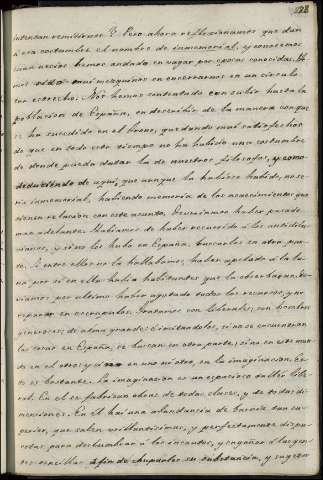 128
intensan remitirnos? Pero ahora reflexionamos que dan
á esa costumbre el nombre de inmemorial, y conocemos
cuan necios hemos andado en vagar por épocas conocidas. He-
mos sido mui mezquinos en encerrarnos en un círculo
tan estrecho. Nos hemos contentado con subir hasta la
poblacion de España, en describir de la manera con que
se ha succedido en el trono, quedando mui satisfechos
de que en todo este tiempo no ha habido una costumbre
de donde pueda datar la de nuestros filósofos, y como
deduciendo de aquí, que aunque la hubiese habido, no se-
ria inmemorial, habiendo memoria de los acaecimientos que
tienen relacion con este asunto. Deviamos haber pasado
mas adelante. Habiamos de haber recurrido á los antidilu-
vianos, y si no los hubo en España, buscarlos en otra par-
te. Si entre ellos no la hallabamos, haber apelado á la lu-
na por si en ella habia habitantes que la observaban. De-
viamos por ultimo haber agotado todos los recursos, y no
reparar en escrupulos. Tratamos con liberales, con hombres
generosos, de alma grande: imitandolos, si no se encuentran
las cosas en España, se buscan en otra parte, si no en este mun-
do en el otro; y si en uno ni otro, en la imaginacion. Es-
to es bastante. La imaginacion es un espacioso taller libe-
ral. En el se fabrican obras de todas clases, y de todas di-
mensiones. En el hai una abundancia de barniz tan su-
perior, que salen brillantisimas, y perfectamente dispu-
estas, para deslumbrar á los incautos, y engañar á las gen-
tes sencillas, á fin de chuparles su substancia, y sugetar